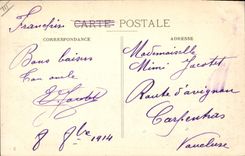 Franchise
CARTE POSTALE
CORRESPONDANCE
ADRESSE
Bons baisers
Ton oncle
Jacotet
8 8bre 1914
Mademoiselle
Mimi Jacotet
Route d'avignon
Carpentras
Vaucluse